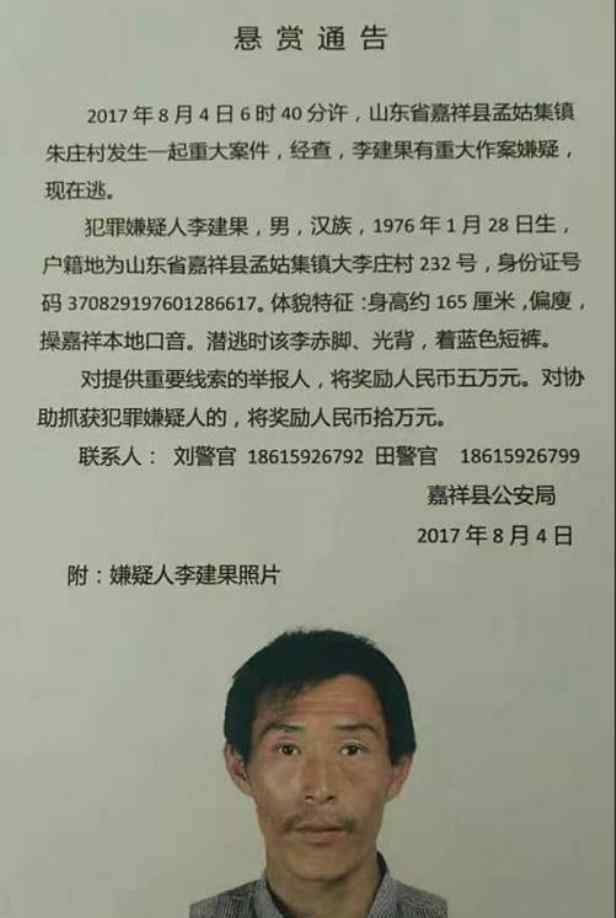 悬赏通告
2017年8月4日6时40分许，山东省嘉祥县孟姑集镇
朱庄村发生一起重大案件，经查，李建果有重大作案嫌疑，
现在逃。
犯罪嫌疑人李建果，男，汉族，1976年1月28日生，
户籍地为山东省嘉祥县孟姑集镇大李庄村232号，身份证号
码370829197601286617。体貌特征：身高约165厘米，偏廋，
操嘉祥本地口音。潜逃时该李赤脚、光背，着蓝色短裤。
对提供重要线索的举报人，将奖励人民币五万元。对协
助抓获犯罪嫌疑人的，将奖励人民币拾万元。
联系人： 刘警官 18615926792 田警官 18615926799
嘉祥县公安局
2017年8月4日
附：嫌疑人李建果照片